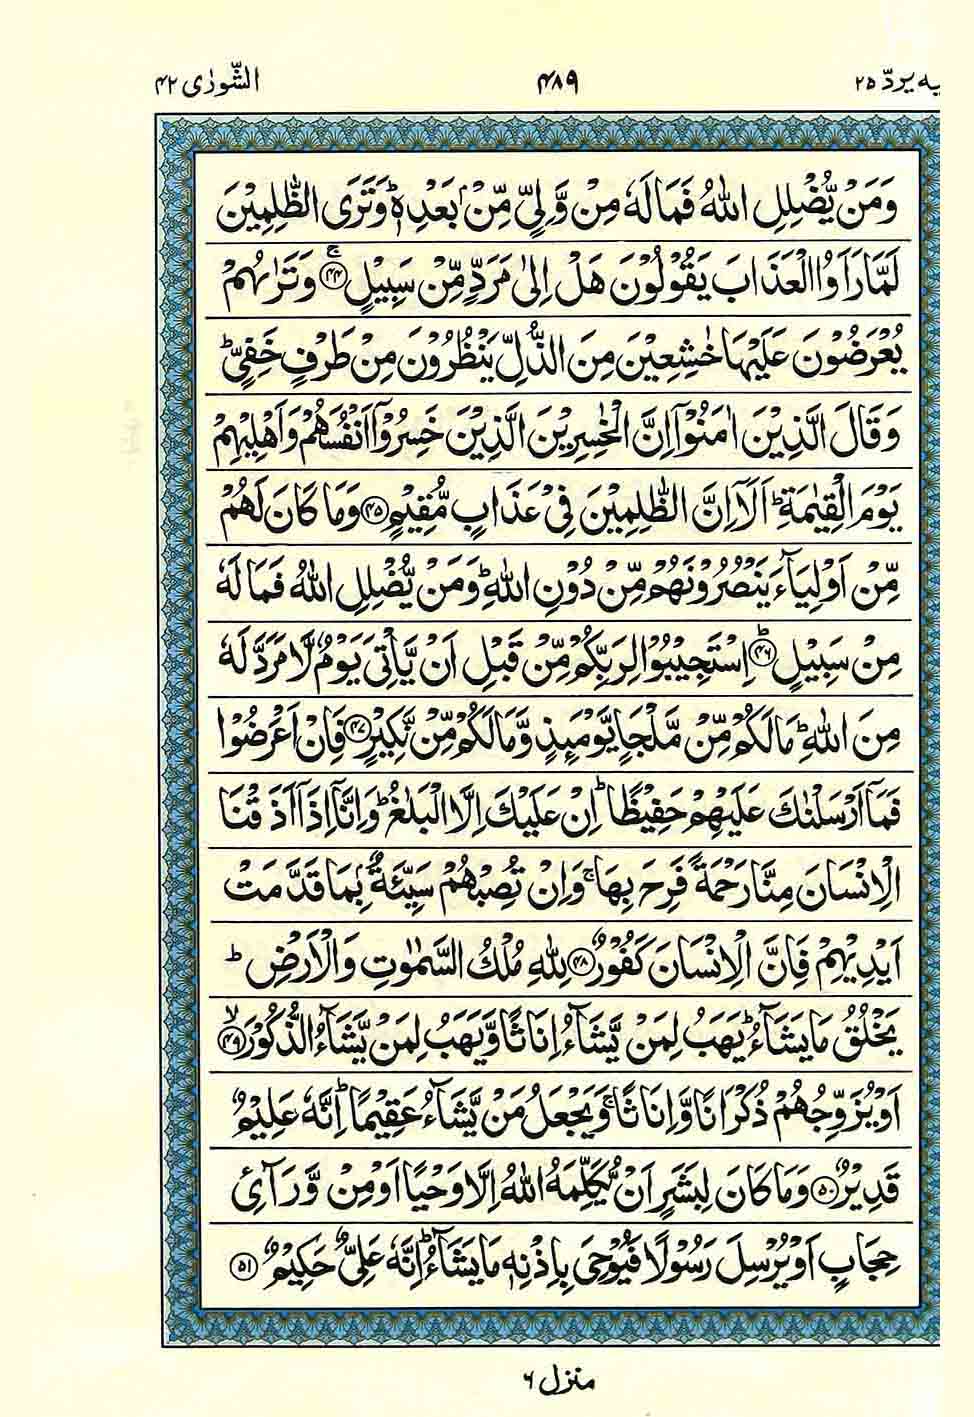 یه یردّ ۲۵
۴۸۹
الشّورٰی ۴۲
وَمَنْ یُّضْلِلِ اللّٰهُ فَمَا لَهٗ مِنْ وَّلِیٍّ مِّنْۢ بَعْدِهٖ ؕ وَتَرَی الظّٰلِمِیْنَ
لَمَّا رَاَوُا الْعَذَابَ یَقُوْلُوْنَ هَلْ اِلٰی مَرَدٍّ مِّنْ سَبِیْلٍ ۚ‏﴿۴۴﴾ وَتَرٰىهُمْ
یُعْرَضُوْنَ عَلَیْهَا خٰشِعِیْنَ مِنَ الذُّلِّ یَنْظُرُوْنَ مِنْ طَرْفٍ خَفِیٍّ ؕ
وَقَالَ الَّذِیْنَ اٰمَنُوْۤا اِنَّ الْخٰسِرِیْنَ الَّذِیْنَ خَسِرُوْۤا اَنْفُسَهُمْ وَاَهْلِیْهِمْ
یَوْمَ الْقِیٰمَةِ ؕ اَلَاۤ اِنَّ الظّٰلِمِیْنَ فِیْ عَذَابٍ مُّقِیْمٍ ﴿۴۵﴾ وَمَا كَانَ لَهُمْ
مِّنْ اَوْلِیَآءَ یَنْصُرُوْنَهُمْ مِّنْ دُوْنِ اللّٰهِ ؕ وَمَنْ یُّضْلِلِ اللّٰهُ فَمَا لَهٗ
مِنْ سَبِیْلٍ ؕ﴿۴۶﴾ اِسْتَجِیْبُوْا لِرَبِّكُمْ مِّنْ قَبْلِ اَنْ یَّاْتِیَ یَوْمٌ لَّا مَرَدَّ لَهٗ
مِنَ اللّٰهِ ؕ مَا لَكُمْ مِّنْ مَّلْجَاٍ یَّوْمَىِٕذٍ وَّمَا لَكُمْ مِّنْ نَّكِیْرٍ ﴿۴۷﴾ فَاِنْ اَعْرَضُوْا
فَمَاۤ اَرْسَلْنٰكَ عَلَیْهِمْ حَفِیْظًا ؕ اِنْ عَلَیْكَ اِلَّا الْبَلٰغُ ؕ وَاِنَّاۤ اِذَاۤ اَذَقْنَا
الْاِنْسَانَ مِنَّا رَحْمَةً فَرِحَ بِهَا ۚ وَاِنْ تُصِبْهُمْ سَیِّئَةٌۢ بِمَا قَدَّمَتْ
اَیْدِیْهِمْ فَاِنَّ الْاِنْسَانَ كَفُوْرٌ ﴿۴۸﴾ لِلّٰهِ مُلْكُ السَّمٰوٰتِ وَالْاَرْضِ ؕ
یَخْلُقُ مَا یَشَآءُ ؕ یَهَبُ لِمَنْ یَّشَآءُ اِنَاثًا وَّیَهَبُ لِمَنْ یَّشَآءُ الذُّكُوْرَ ۙ﴿۴۹﴾
اَوْ یُزَوِّجُهُمْ ذُكْرَانًا وَّاِنَاثًا ۚ وَیَجْعَلُ مَنْ یَّشَآءُ عَقِیْمًا ؕ اِنَّهٗ عَلِیْمٌ
قَدِیْرٌ ﴿۵۰﴾ وَمَا كَانَ لِبَشَرٍ اَنْ یُّكَلِّمَهُ اللّٰهُ اِلَّا وَحْیًا اَوْ مِنْ وَّرَآئِ
حِجَابٍ اَوْ یُرْسِلَ رَسُوْلًا فَیُوْحِیَ بِاِذْنِهٖ مَا یَشَآءُ ؕ اِنَّهٗ عَلِیٌّ حَكِیْمٌ ﴿۵۱﴾
منزل ۶